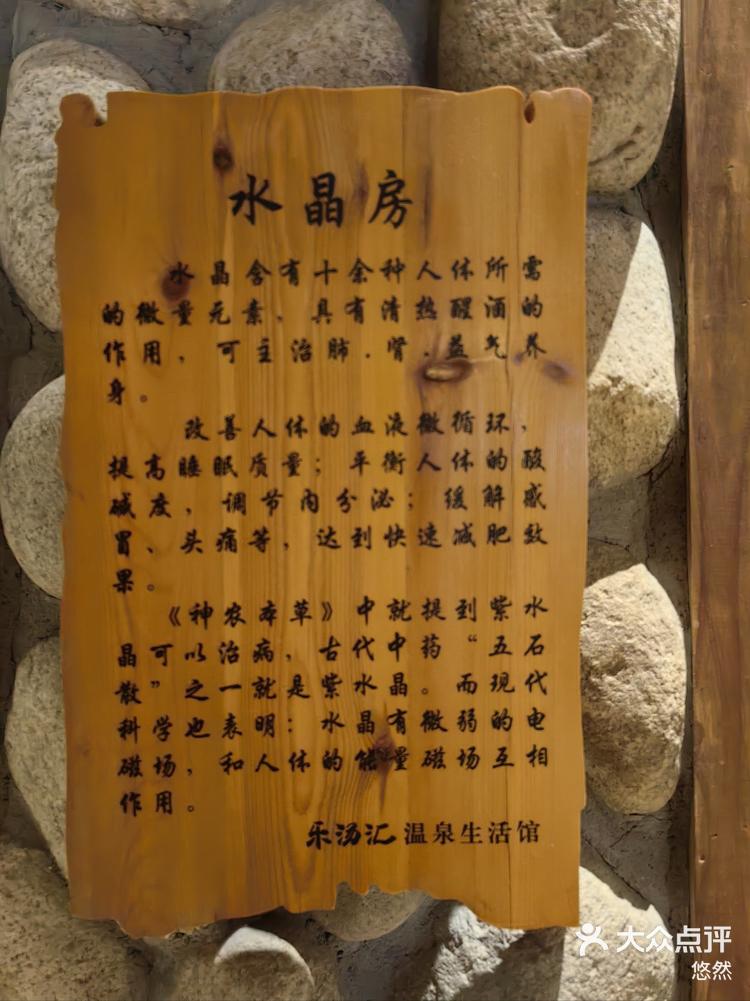 水晶房
水晶含有十余种人体所需
的微量元素，具有清热醒酒的
作用，可主治肺.肾.益气养
身。
改善人体的血液微循环，
提高睡眠质量；平衡人体的酸
碱度，调节内分泌；缓解感
冒、头痛等，达到快速减肥效
果。
《神农本草》中就提到紫水
晶可以治病，古代中药“五石
散”之一就是紫水晶。而现代
科学也表明：水晶有微弱的电
磁场，和人体的能量磁场互相
作用。
乐汤汇 温泉生活馆
大众点评
悠然